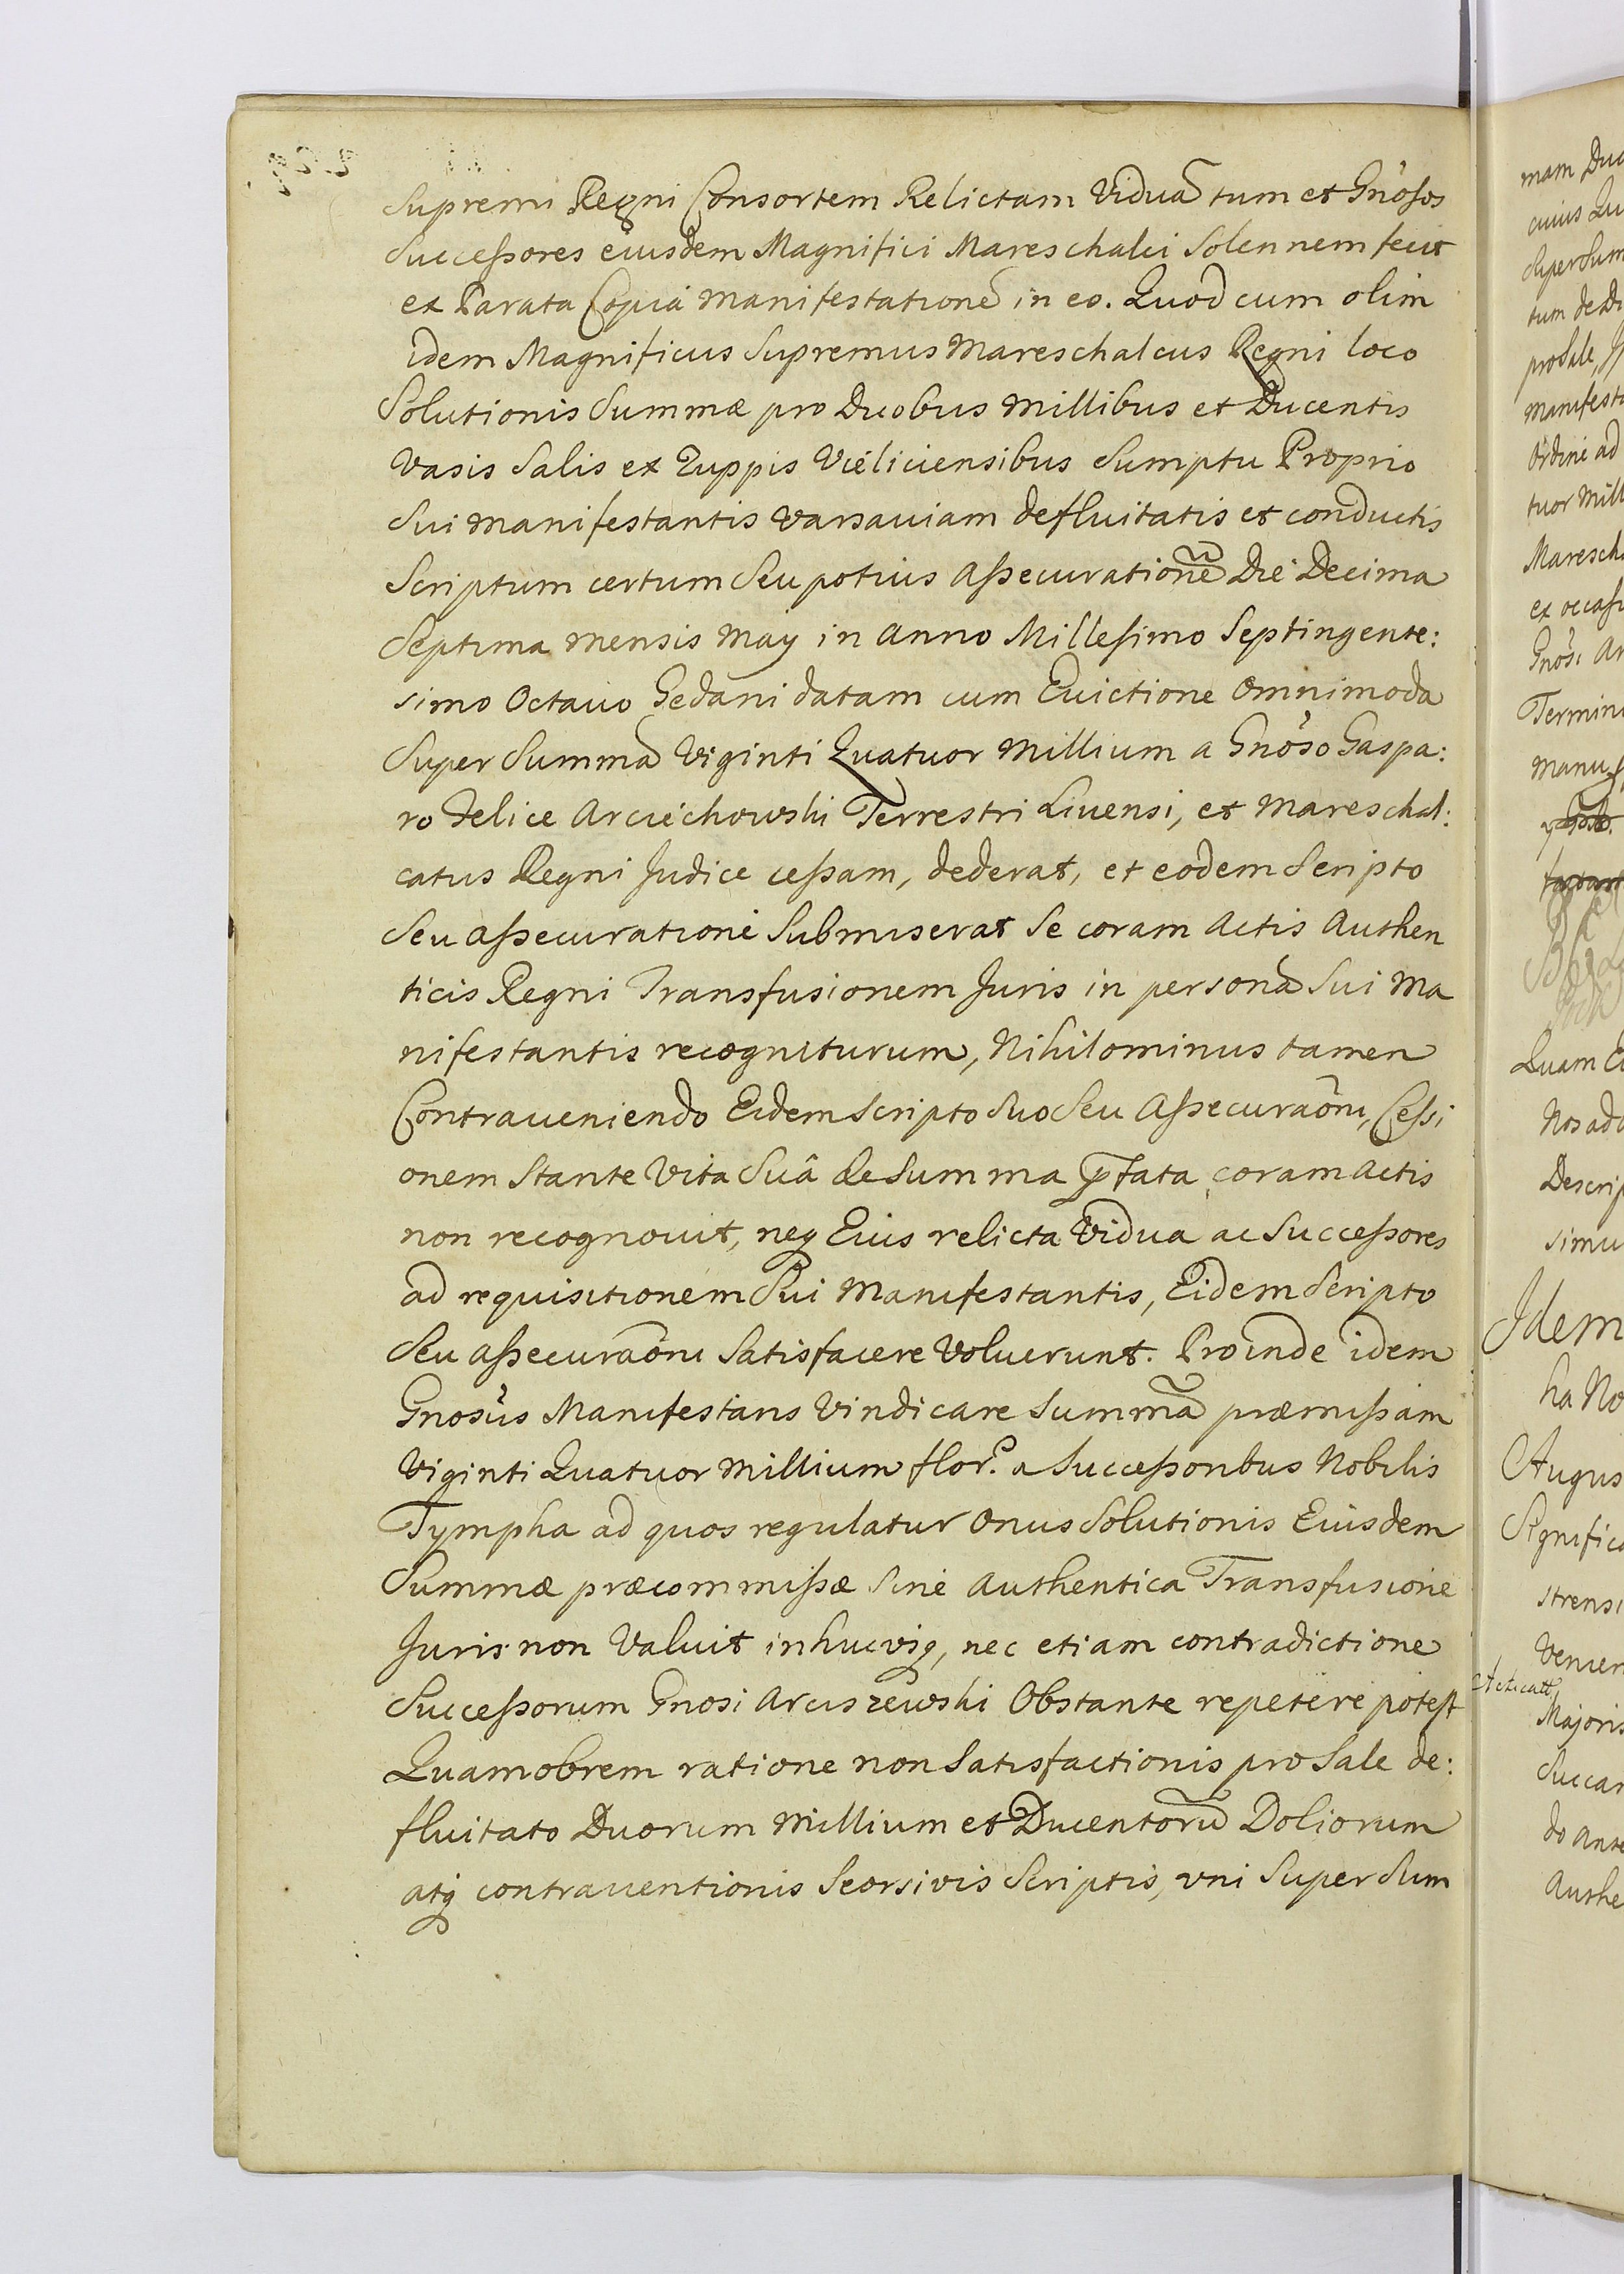 Supremi Regni Consortem Relictam Viduã tum et Gnõsos
Successores eiusdem Magnifici Mareschalci Solennem fecit
ex Parata Copia manifestationẽ in eo. Quod cum olim
idem Magnificus Supremus Mareschalcus Regni loco
Solutionis Summæ pro Duobus Millibus et Ducentis
Vasis Salis ex Zuppis Vieliciensibus Sumptu Proprio
Sui manifestantis Varsauiam defluitatis et conductis
Scriptum certum Seu potius Assecurationẽ Die Decima
Septima mensis May in Anno Millesimo Septingente:
simo Octauo Gedani datam cum Euictione Omnimoda
Super Summã Viginti Quatuor Millium a Gnõso Gaspa:
ro Felice Arciechowski Terrestri Liuensi, et Mareschal:
catus Regni Judice cessam, dederat, et eodem Scripto
Seu assecuratione Submiserat Se coram Actis Authen
ticis Regni Transfusionem Juris in personã Sui Ma
nifestantis recogniturum, Nihilominus tamen
Contraueniendo Eidem Scripto Suo Seu Assecuraõni, Cessi
onem Stante Vita Suâ de Summa p̃fata coram Actis
non recognouit, neq Eius relicta Vidua ac Successores
ad requisitionem Sui Manifestantis, Eidem Scripto
Seu assecuraõni Satisfacere Voluerunt. Proinde idem
Gnosus Manifestans Vindicare Summã præmissam
Viginti Quatuor Millium flor. a Successoribus Nobilis
Tympha ad quos regulatur Onus Solutionis Eiusdem
Summæ præcommissæ Sine Authentica Transfusione
Juris non Valuit inhucvsq, nec etiam contradictione
Successorum Gnosi Arciszewski Obstante repetere potest
Quamobrem ratione non Satisfactionis pro Sale de:
fluitato Duorum Millium et Ducentorũ Doliorum
atq contrauentionis Seorsivis Scriptis, vni Super Sum
mam
cuius
Super Sum
tum de
pro Sale,
Manifest
Ordine ad
tuor Mill
Maresch
ex occas
Gnosi
Termin
manu
Quam
Nos ad
Descrip
simu
Idem
ha No
Augus
Signific
strensi
Venien
Majoris
Succa
do ante
Authe